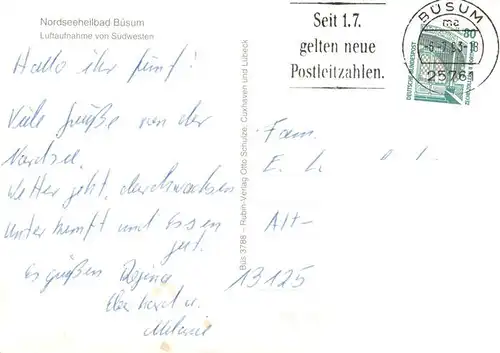 Nordseeheilbad Büsum
Luftaufnahme von Südwesten
Hallo ihr fünf!
Viele Grüße von der
Nordsee.
Wetter geht, durchwachsen
Unterkunft und Essen
gut.
Es grüßen Regina
Eberhard u.
Melanie
Büs 3788 – Rubin-Verlag Otto Schulze, Cuxhaven und Lübeck
Seit 1.7.
gelten neue
Postleitzahlen.
BÜSUM
mc
-6.-7.93-18
25761
80
DEUTSCHE BUNDESPOST
Fam.
E. L.
Alt-
13125